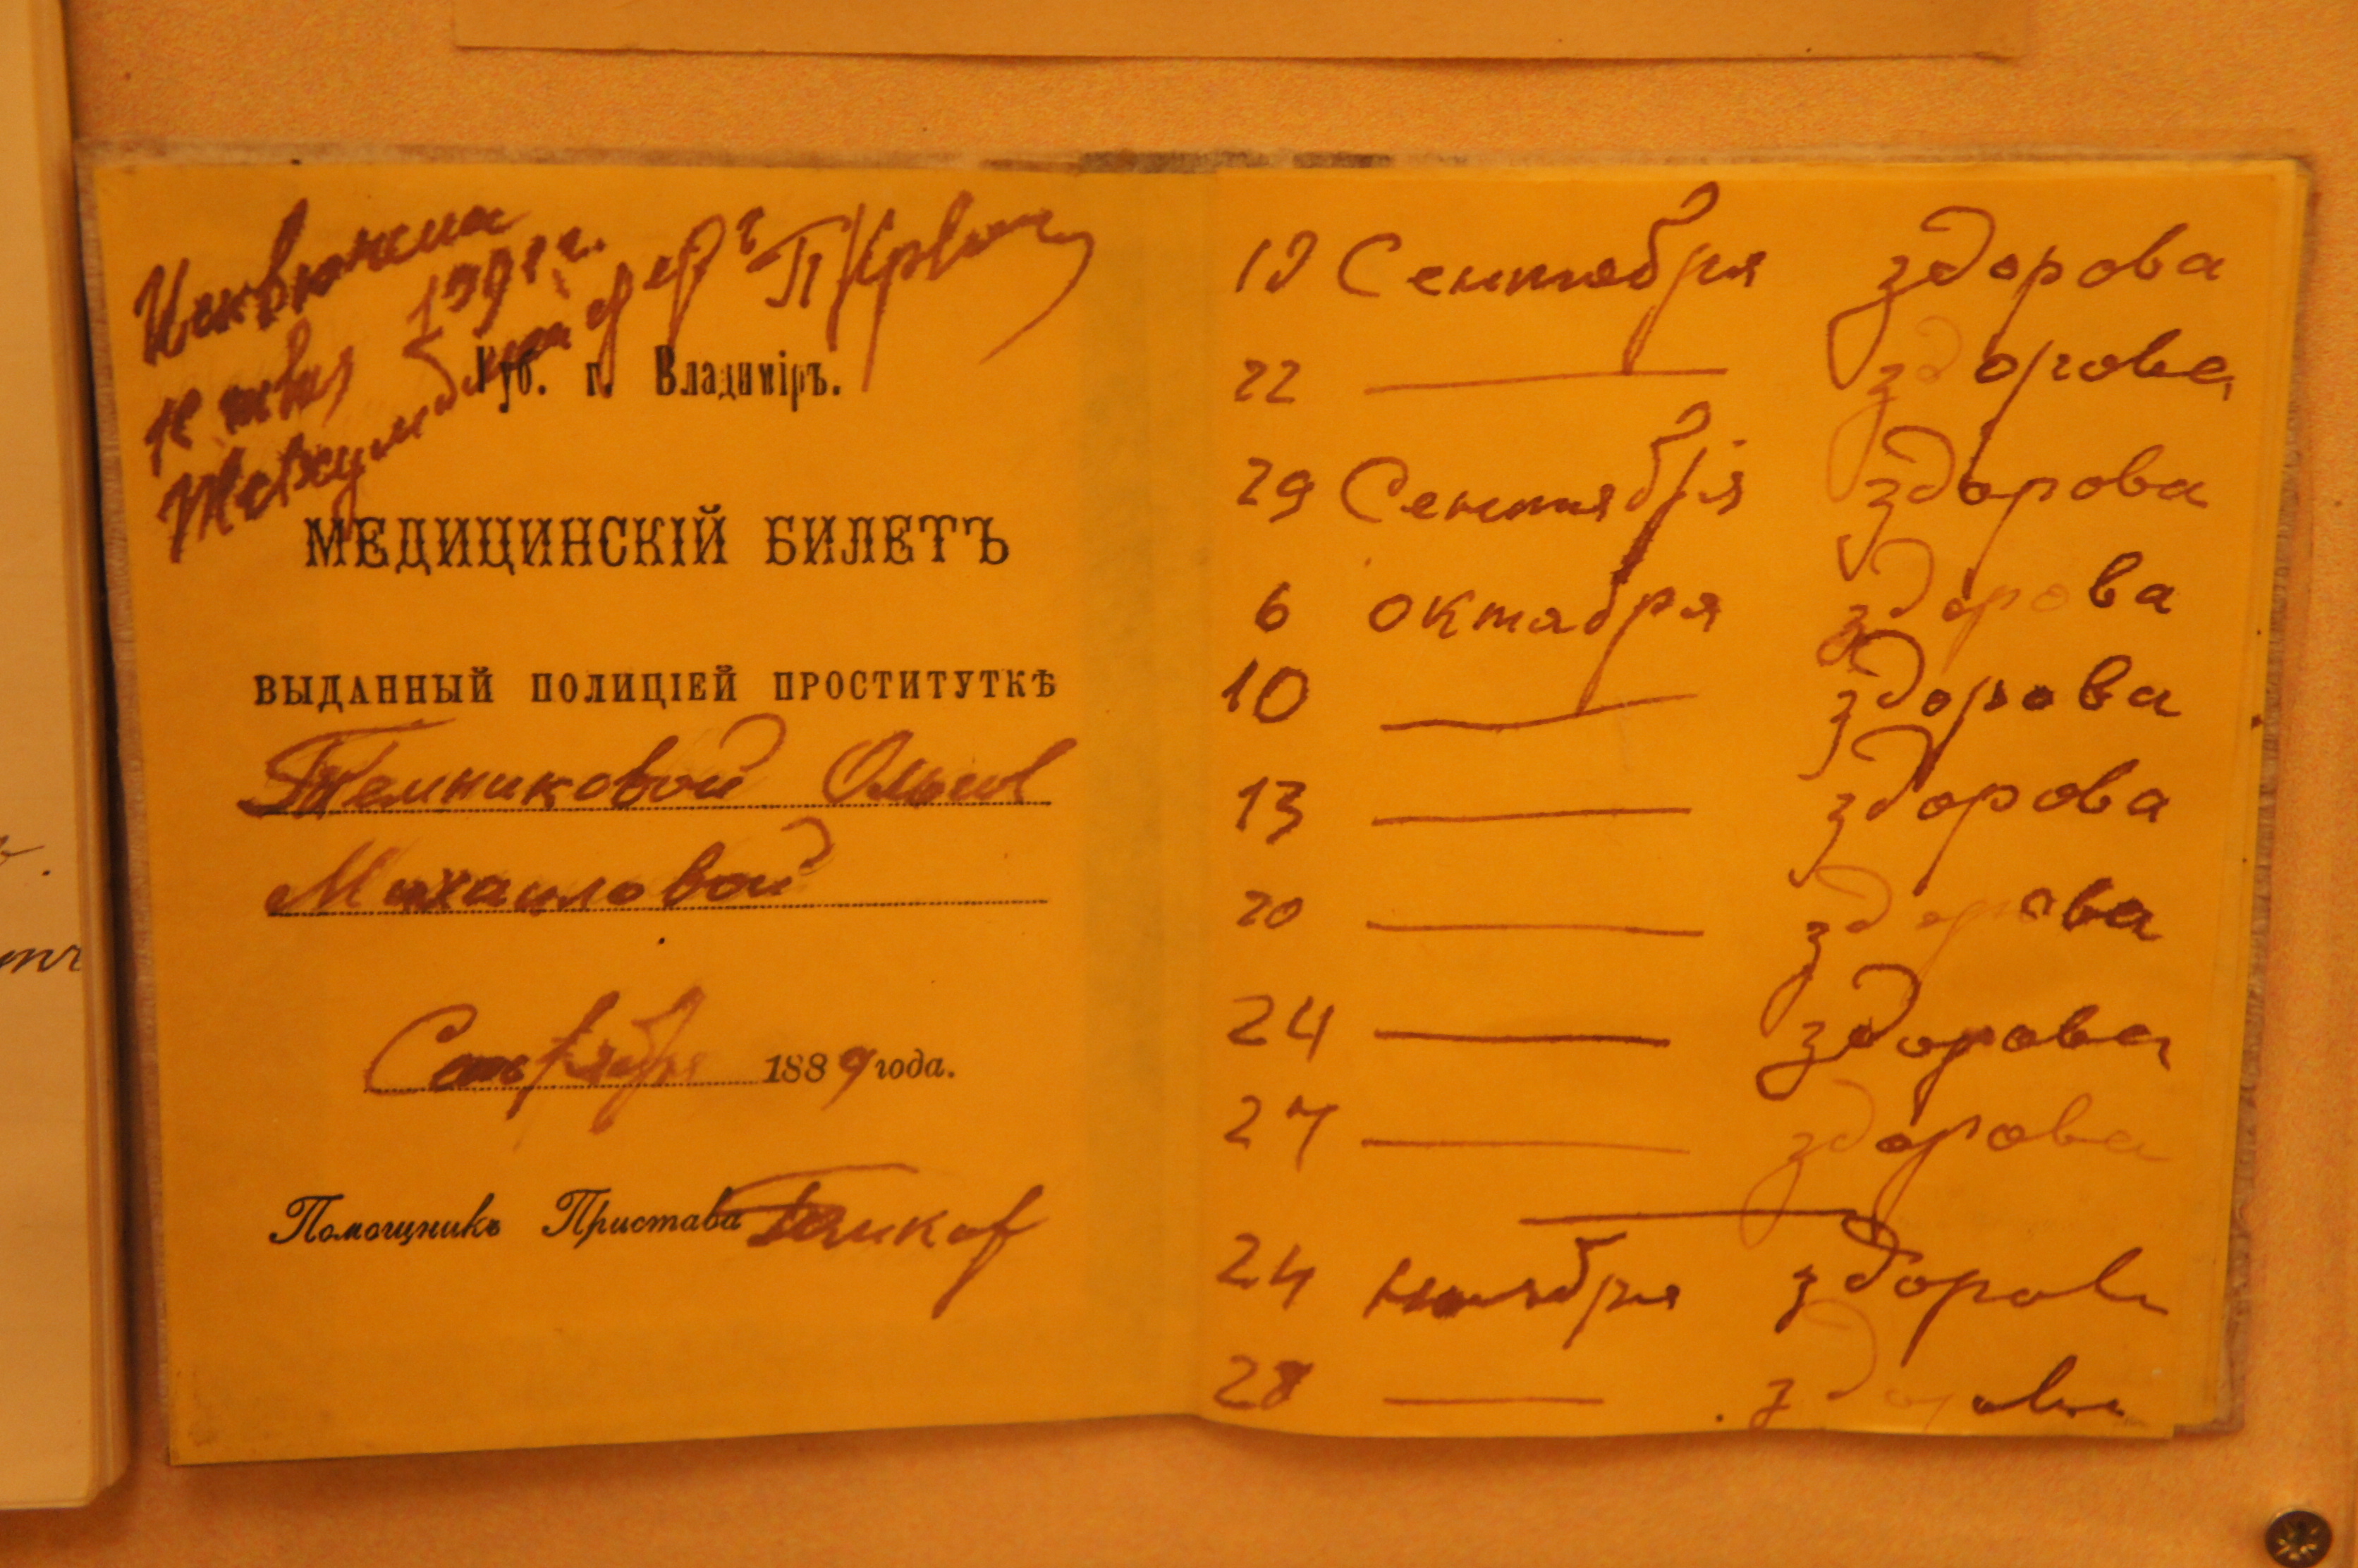 Губ. г. Владиміръ.
МЕДИЦИНСКІЙ БИЛЕТЪ
ВЫДАННЫЙ ПОЛИЦІЕЙ ПРОСТИТУТКѢ
Темниковой Ольги
Михайловой
1889 года.
Помощникъ Пристава
Сентября здорова
22 — здорова
29 Сентября здорова
6 октября здорова
10 — здорова
13 — здорова
20 — здорова
24 — здорова
27 — здорова
24 ноября здорова
28 — здорова